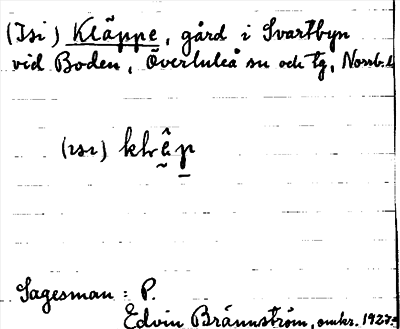 (Isi) Kläppe, gård i Svartbyn
vid Boden, Överluleå sn och tg, Norrb. l
(ısı)
Sagesman: P.
Edvin Brännström, omkr. 1927.